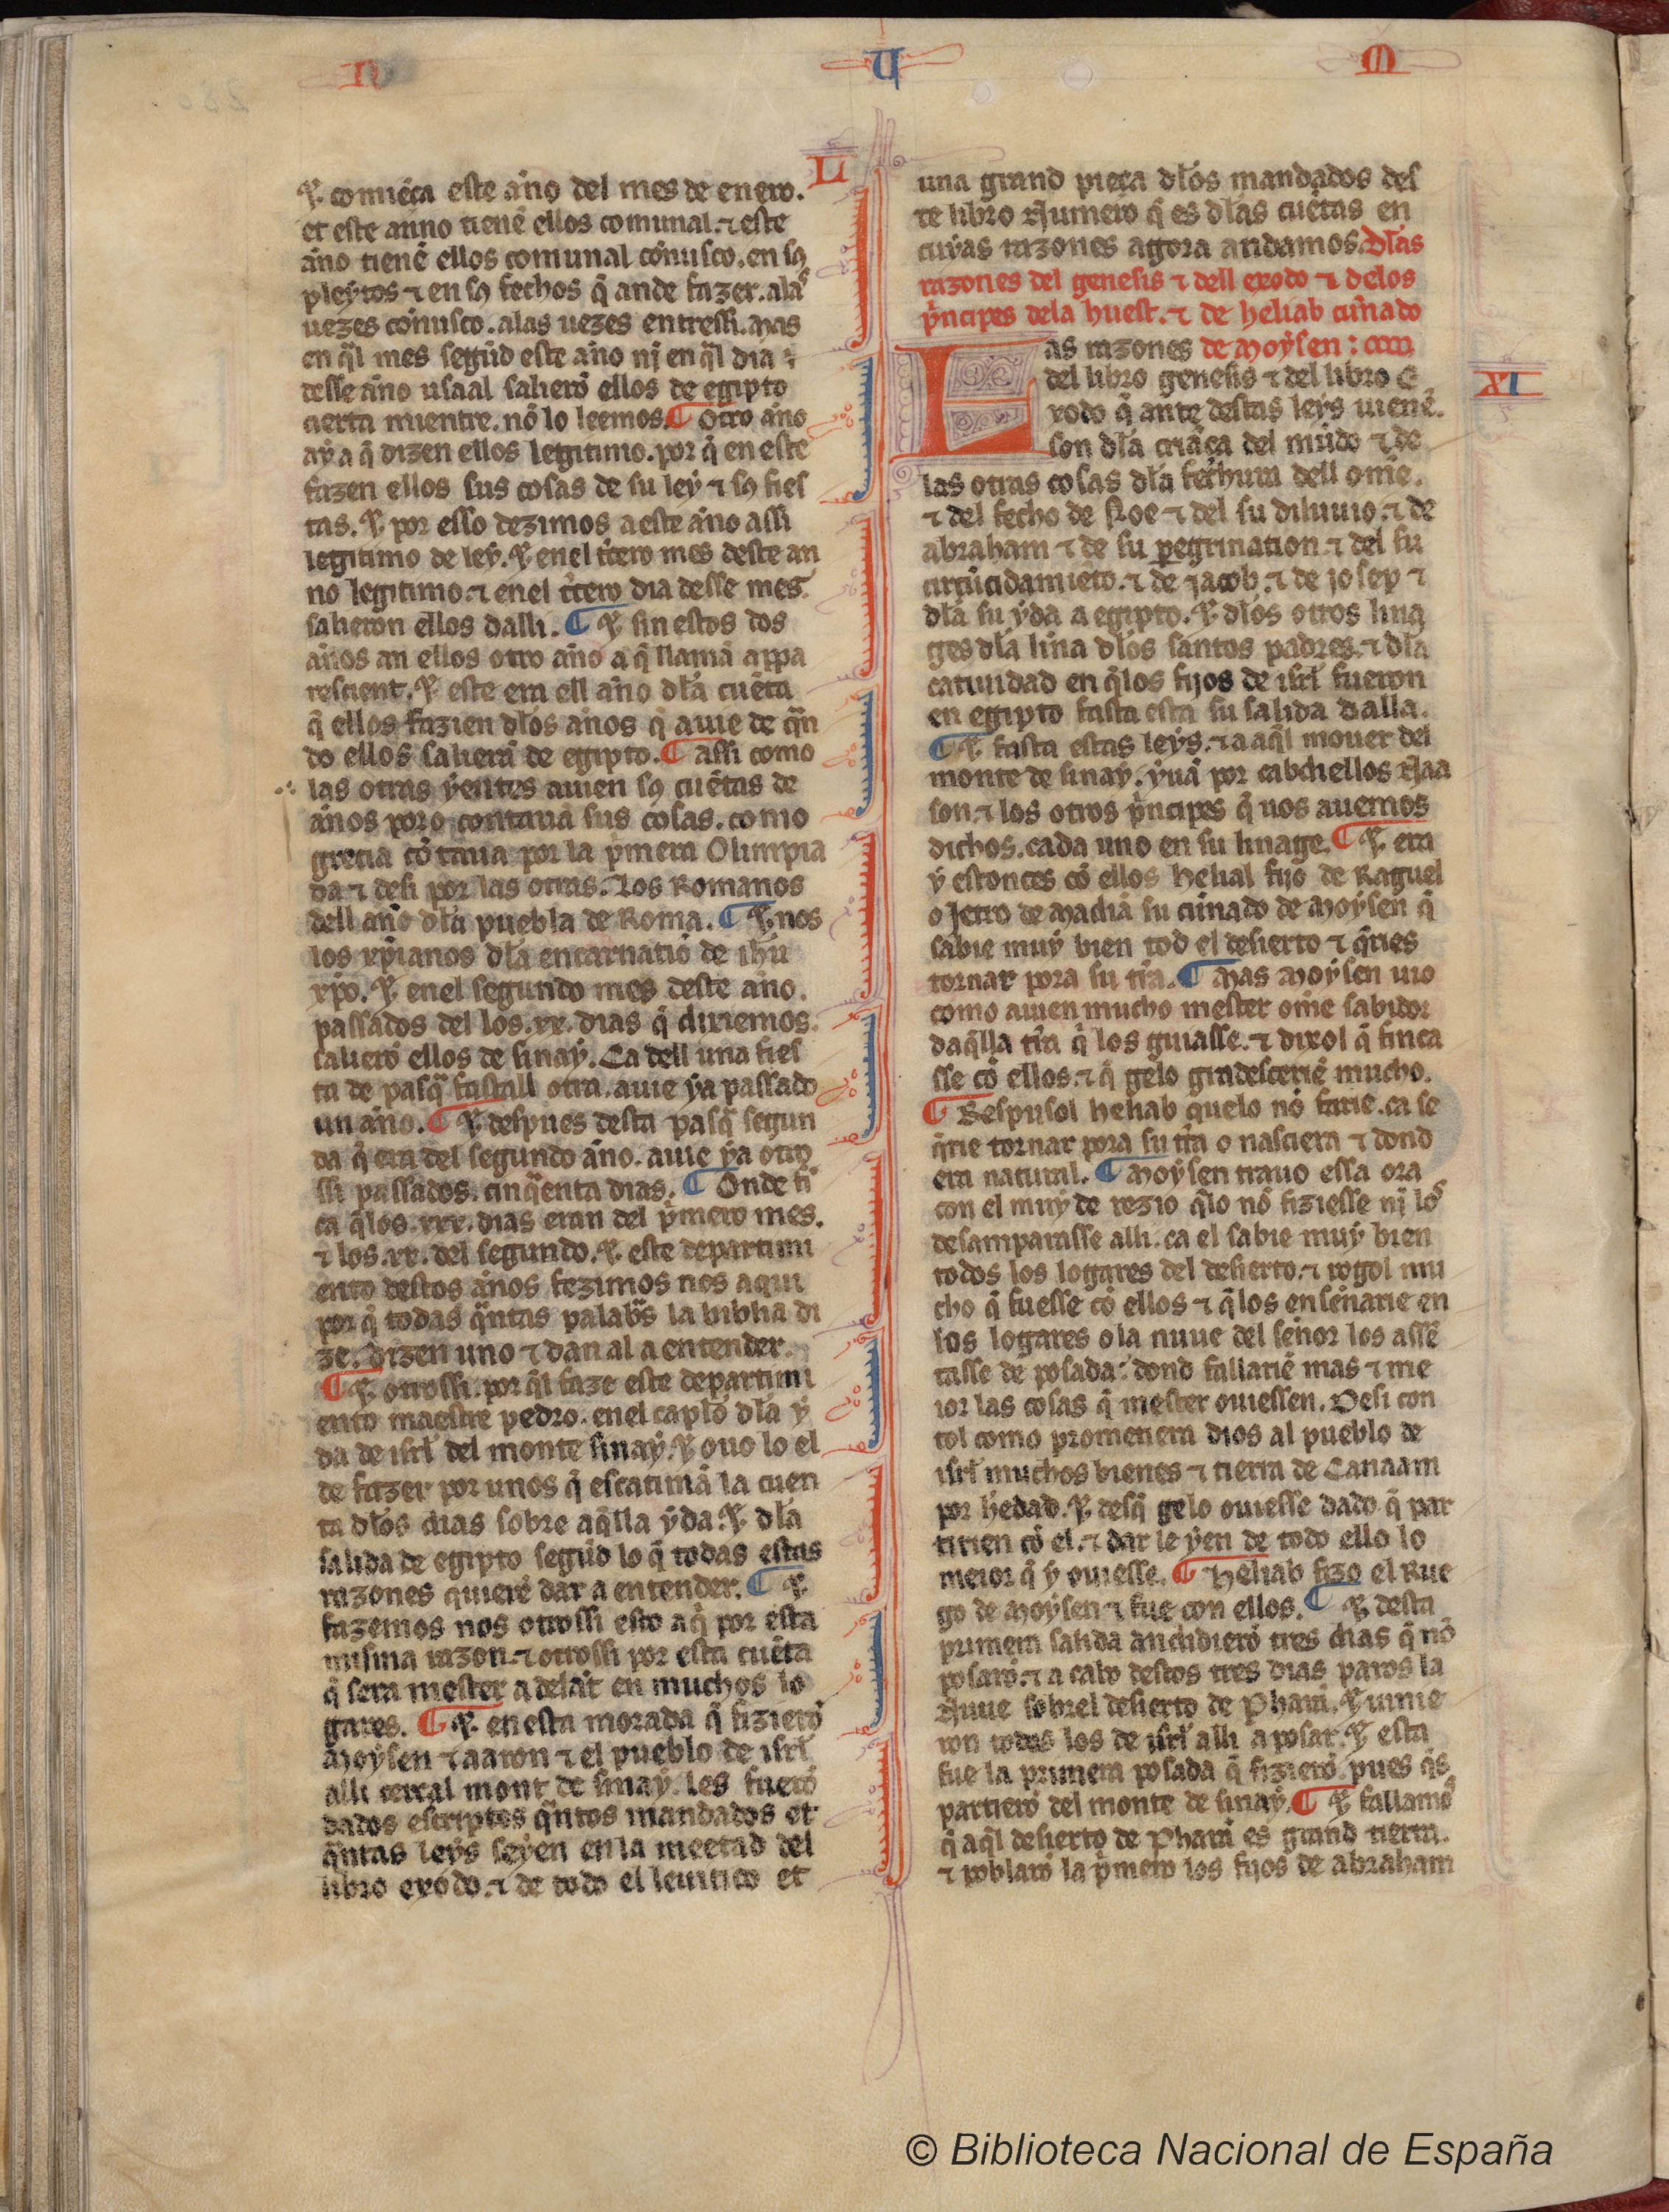 N U M
L
⁊ comiẽça este año del mes de enero.
et este anno tienẽ ellos comunal. ⁊ este
año tienẽ ellos comunal cõnusco. en sꝯ
pleytos ⁊ en sꝯ fechos q̃ an de fazer. alas
uezes cõnusco. alas uezes entressi. mas
en q̃l mes segũd este año nj en q̃l dia
desse año usaal salierõ ellos de egipto
cierta mientre. nõ lo leemos. ¶ Otro año
ay a q̃ dizen ellos legitimo. por q̃ en este
fazen ellos sus cosas de su ley ⁊ sꝯ fies
tas. ⁊ por esso dezimos a este año assi
legitimo de ley. ⁊ en el t̃cero mes deste an
no legitimo. ⁊ en el t̃cero dia desse mes
salieron ellos dalli. ¶ ⁊ sin estos dos
años an ellos otro año a q̃ llamã appa
rescient. ⁊ este era ell año dl̃a cuẽta
q̃ ellos fazien dl̃os años q̃ auie de q̃n
do ellos salierã de egipto. ¶ assi como
las otras yentes auien sꝯ cuẽtas de
años poro contauã sus cosas. como
grecia cõtaua por la p̃mera Olimpia
da ⁊ desi por las otras. Los Romanos
dell año dl̃a puebla de Roma. ¶ ⁊ nos
los xp̃ianos dl̃a encarnatiõ de ih̃u
xp̃o. ⁊ en el segundo mes deste año.
passados del los .xx. dias q̃ dixiemos.
salierõ ellos de sinay. Ca dell una fies
ta de pasq̃ fastall otra. auie ya passado
un año. ¶ ⁊ despues desta pasq̃ segun
da q̃ era del segundo año. auie ya otro
ssi passados. cinq̃enta dias. ¶ Onde fi
ca q̃los .xxx. dias eran del p̃mero mes.
⁊ los .xx. del segundo. ⁊ este departimi
ento destos años fezimos nos aqui
por q̃ todas q̃ntas palab̃s la biblia di
ze. dizen uno ⁊ dan al a entender.
¶ ⁊ otrossi. por q̃l faze este departimi
ento maestre pedro. en el cap̃lo dl̃a y
da de isrl̃ del monte sinay. ⁊ ouo lo el
de fazer por unos q̃ escatimã la cuen
ta dl̃os dias sobre aq̃lla yda. ⁊ dl̃a
salida de egipto segũd lo q̃ todas estas
razones quierẽ dar a entender. ¶ ⁊
fazemos nos otrossi esto aq̃ por esta
misma razon. ⁊ otrossi por esta cuẽta
q̃ sera mester adelãt en muchos lo
gares. ¶ ⁊ en esta morada q̃ fizierõ
moysen ⁊ aaron ⁊ el pueblo de isrl̃
alli cercal mont de sinay. les fuerõ
dados escriptos q̃ntos mandados et
q̃ntas leys seyen en la meetad del
libro exodo. ⁊ de todo el leuitico et
una grand pieça dl̃os mandados des
te libro Numero q̃ es dl̃as cuẽtas en
cuyas razones agora andamos. Dl̃as
razones del genesis ⁊ dell exodo ⁊ delos
p̃ncipes dela huest. ⁊ de heliab cuñado
Las razones de moysen:
XI
del libro genesis ⁊ del libro e
xodo q̃ ante destas leys uienẽ.
son dl̃a criãça del mũdo ⁊ de
las otras cosas dl̃a fechura dell om̃e.
⁊ del fecho de Noe ⁊ del su diluuio. ⁊ de
abraham ⁊ de su peg̃rination. ⁊ del su
circũcidamiẽto. ⁊ de jacob. ⁊ de josep ⁊
dl̃a su yda a egipto. ⁊ dl̃os otros lina
ges dl̃a liña dl̃os santos padres. ⁊ dl̃a
catiuidad en q̃los fijos de isrl̃ fueron
en egipto fasta esta su salida dalla.
¶ ⁊ fasta estas leys. ⁊ a aq̃l mouer del
monte de sinay. yuã por cabdiellos Naa
son. ⁊ los otros p̃ncipes q̃ uos auemos
dichos. cada uno en su linage. ¶ ⁊ era
y estonces cõ ellos heliab fijo de Raguel
o Jetro de madiã su cũnado de moysen q̃
sabie muy bien tod el desierto ⁊ q̃ries
tornar pora su tr̃a. ¶ Mas moysen uio
como auien mucho mester om̃e sabidor
daq̃lla tr̃a q̃ los guiasse. ⁊ dixol q̃ finca
sse cõ ellos. ⁊ q̃ gelo gradescerie mucho.
¶ Respusol heliab quelo nõ farie. ca se
q̃rie tornar pora su tr̃a o nasciera ⁊ dond
era natural. ¶ Moysen trauo essa ora
con el muy de rezio q̃lo nõ fiziesse nj los
desamparasse alli. ca el sabie muy bien
todos los logares del desierto. ⁊ rogol mu
cho q̃ fuesse cõ ellos ⁊ q̃los enseñarie en
los logares o la nuue del señor los assẽ
tasse de posada: dond fallariẽ mas ⁊ me
ior las cosas q̃ mester ouiessen. Desi con
tol como prometiera dios al pueblo de
isrl̃ muchos bienes ⁊ tierra de Canaam
por h̃edad. ⁊ desq̃ gelo ouiesse dado q̃ par
tirien cõ el. ⁊ dar le yen de todo ello lo
meior q̃ y ouiesse. ¶ Heliab fizo el Rue
go de moysen ⁊ fue con ellos. ¶ ⁊ desta
primera salida andidierõ tres dias q̃ nõ
posarõ. ⁊ a cabo destos tres dias paros la
Nuue sobrel desierto de Pharã. ⁊ uinie
ron todos los de isrl̃ alli a posar. ⁊ esta
fue la primera posada q̃ fizierõ. pues q̃s
partierõ del monte de sinay. ¶ ⁊ fallamos
q̃ aq̃l desierto de Pharã es grand tierra.
⁊ poblarõ la p̃mero los fijos de abraham
© Biblioteca Nacional de España